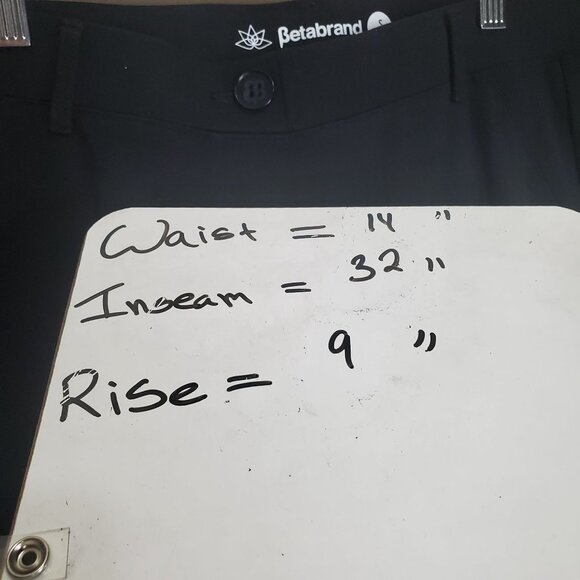 Betabrand S
Waist = 14 "
Inseam = 32 "
Rise = 9 "